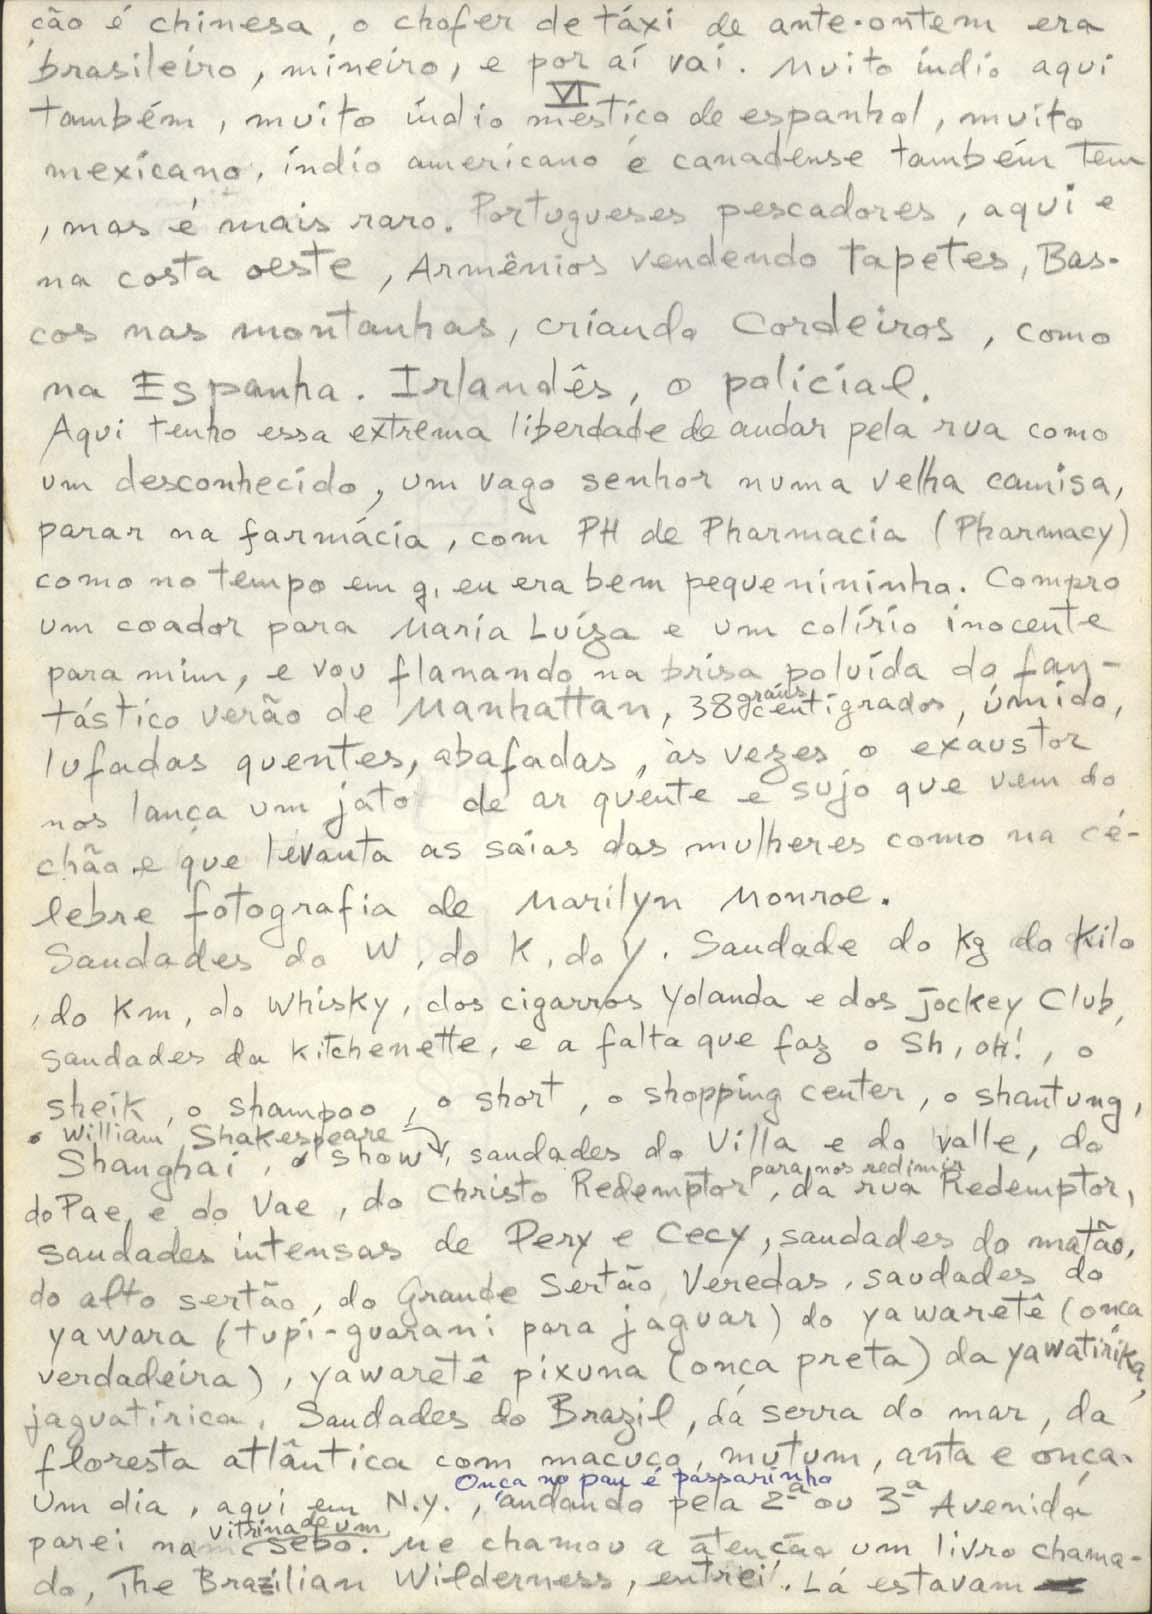 ção é chinesa, o chofer de táxi de ante-ontem era
brasileiro, mineiro, e por aí vai. Muito índio aqui
VI
também, muito índio mestiço de espanhol, muito
mexicano, índio americano e canadense também tem
, mas é mais raro. Portugueses pescadores, aqui e
na costa oeste, Armênios vendendo tapetes, Bas-
cos nas montanhas, criando Cordeiros, como
na Espanha. Irlandês, o policial.
Aqui tenho essa extrema liberdade de andar pela rua como
um desconhecido, um vago senhor numa velha camisa,
parar na farmácia, com PH de Pharmacia (Pharmacy)
como no tempo em q, eu era bem pequenininho. Compro
um coador para Maria Luíza e um colírio inocente
para mim, e vou flanando na brisa poluída do fan-
tástico verão de Manhattan, 38 graus centígrados, úmido,
lufadas quentes, abafadas, às vezes o exaustor
nos lança um jato de ar quente e sujo que vem do
chão e que levanta as saias das mulheres como na cé-
lebre fotografia de Marilyn Monroe.
Saudades do W, do K, do Y. Saudade do Kg do Kilo
, do Km, do Whisky, dos cigarros Yolanda e dos Jockey Club,
saudades da Kitchenette, e a falta que faz o Sh, oh!, o
sheik, o shampoo, o short, o shopping center, o shantung,
o William Shakespeare
Shanghai, o show, saudades do Villa e do Valle, do
do Pae, e do Vae, do Christo Redemptor para nos redimir, da rua Redemptor,
saudades intensas de Pery e Cecy, saudades do matão,
do alto sertão, do Grande Sertão Veredas, saudades do
yawara (tupí-guarani para jaguar) do yawaretê (onça
verdadeira), yawaretê pixuna (onça preta) da yawatirika,
jaguatirica. Saudades do Brazil, da serra do mar, da
floresta atlântica com macuco, mutum, anta e onça.
Onça no pau é passarinho
Um dia, aqui em N.y., andando pela 2ª ou 3ª Avenida
parei na vitrina de um sebo. Me chamou a atenção um livro chama-
do, The Brazilian Wilderness, entrei. Lá estavam